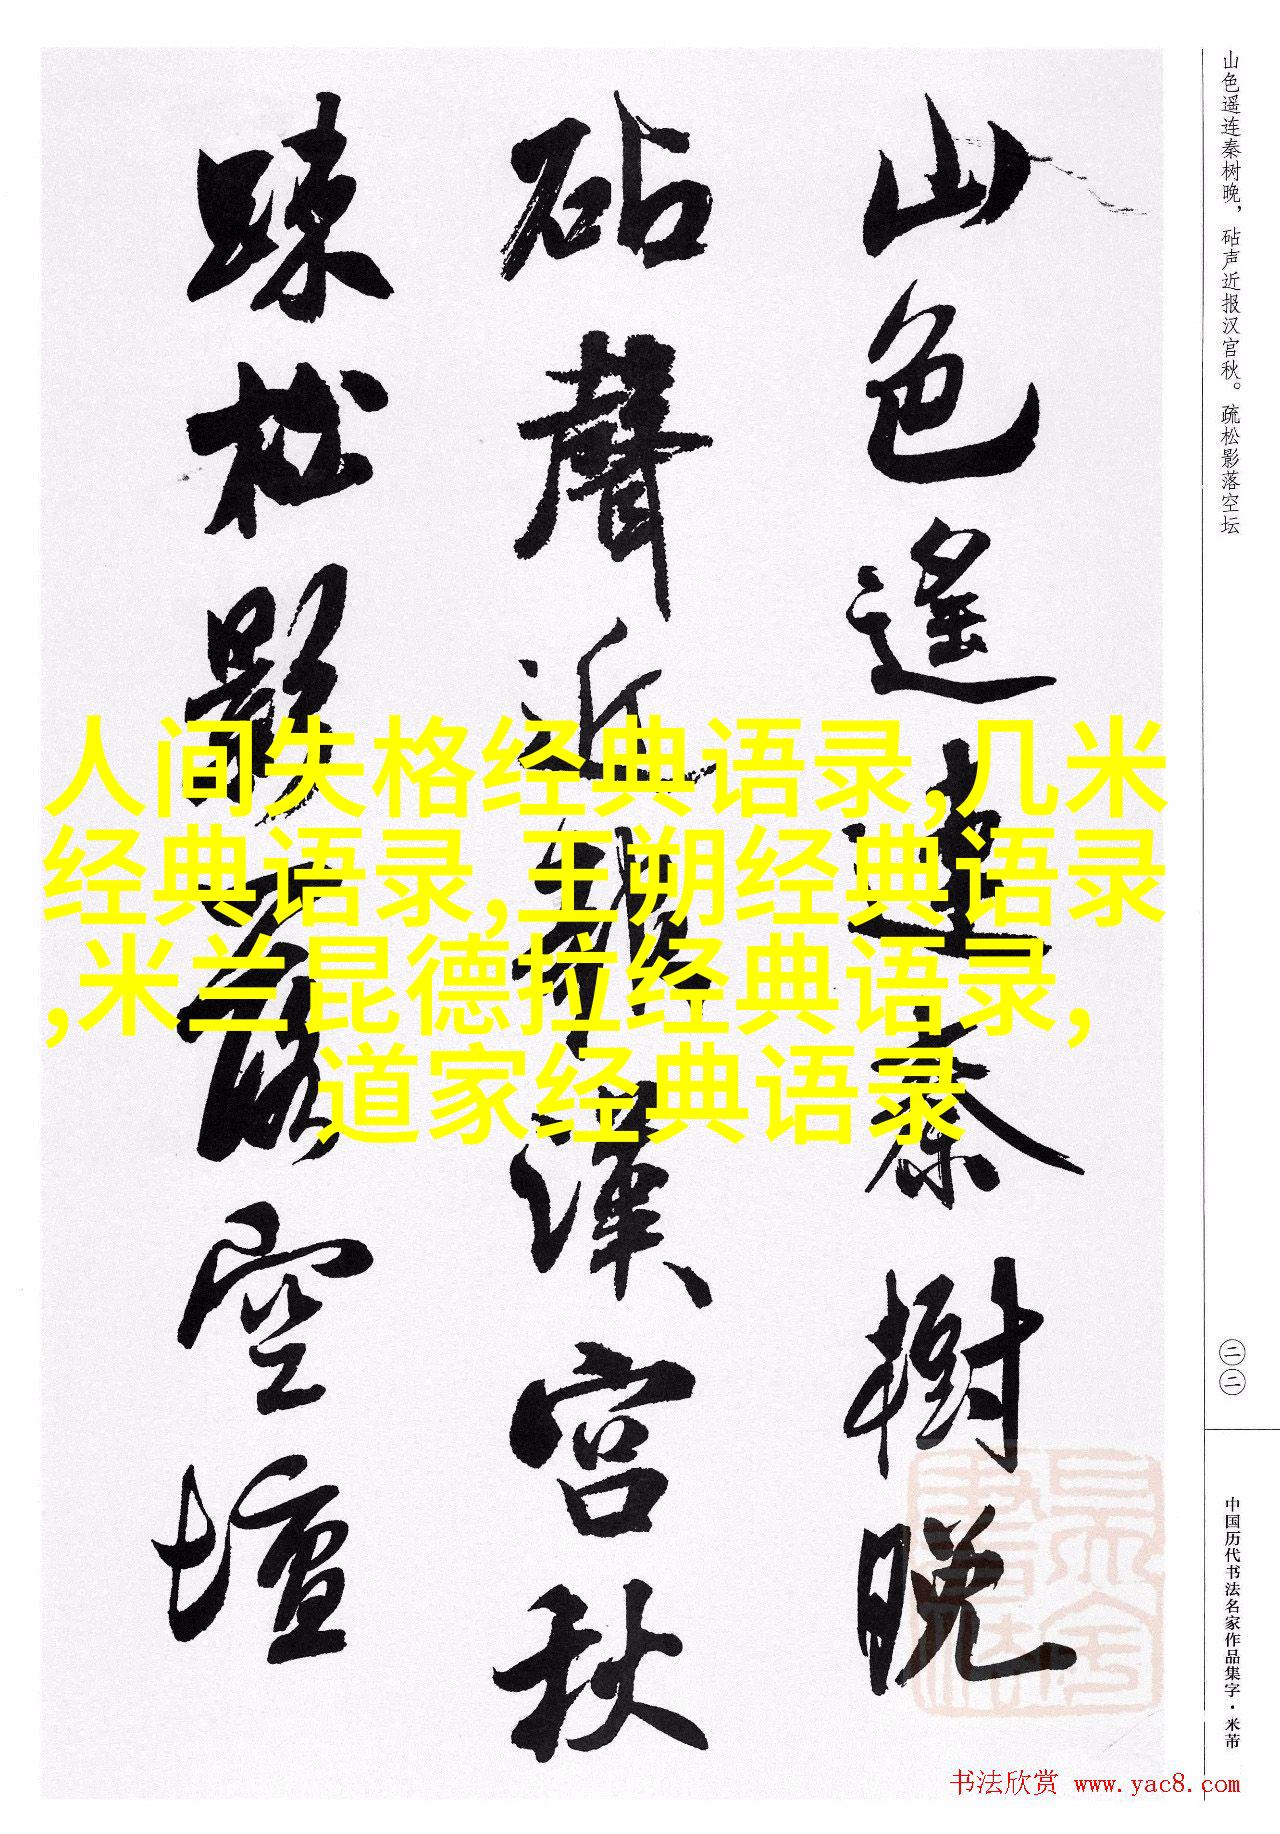 山色遥连秦树晚，砧声近报汉宫秋。疏松影落空坛
山色遙連秦樹晚
砧聲近報漢宮秋
踈松影落空壇
人间失格经典语录,几米
经典语录,王朔经典语录
,米兰昆德拉经典语录,
道家经典语录
二二
中国历代书法名家作品集字·米芾
书法欣赏 www.yac8.com